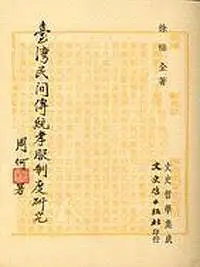 徐福全著
文史哲學集成
文史哲出版社印行
臺灣民間傳統孝服制度研究
周何
署